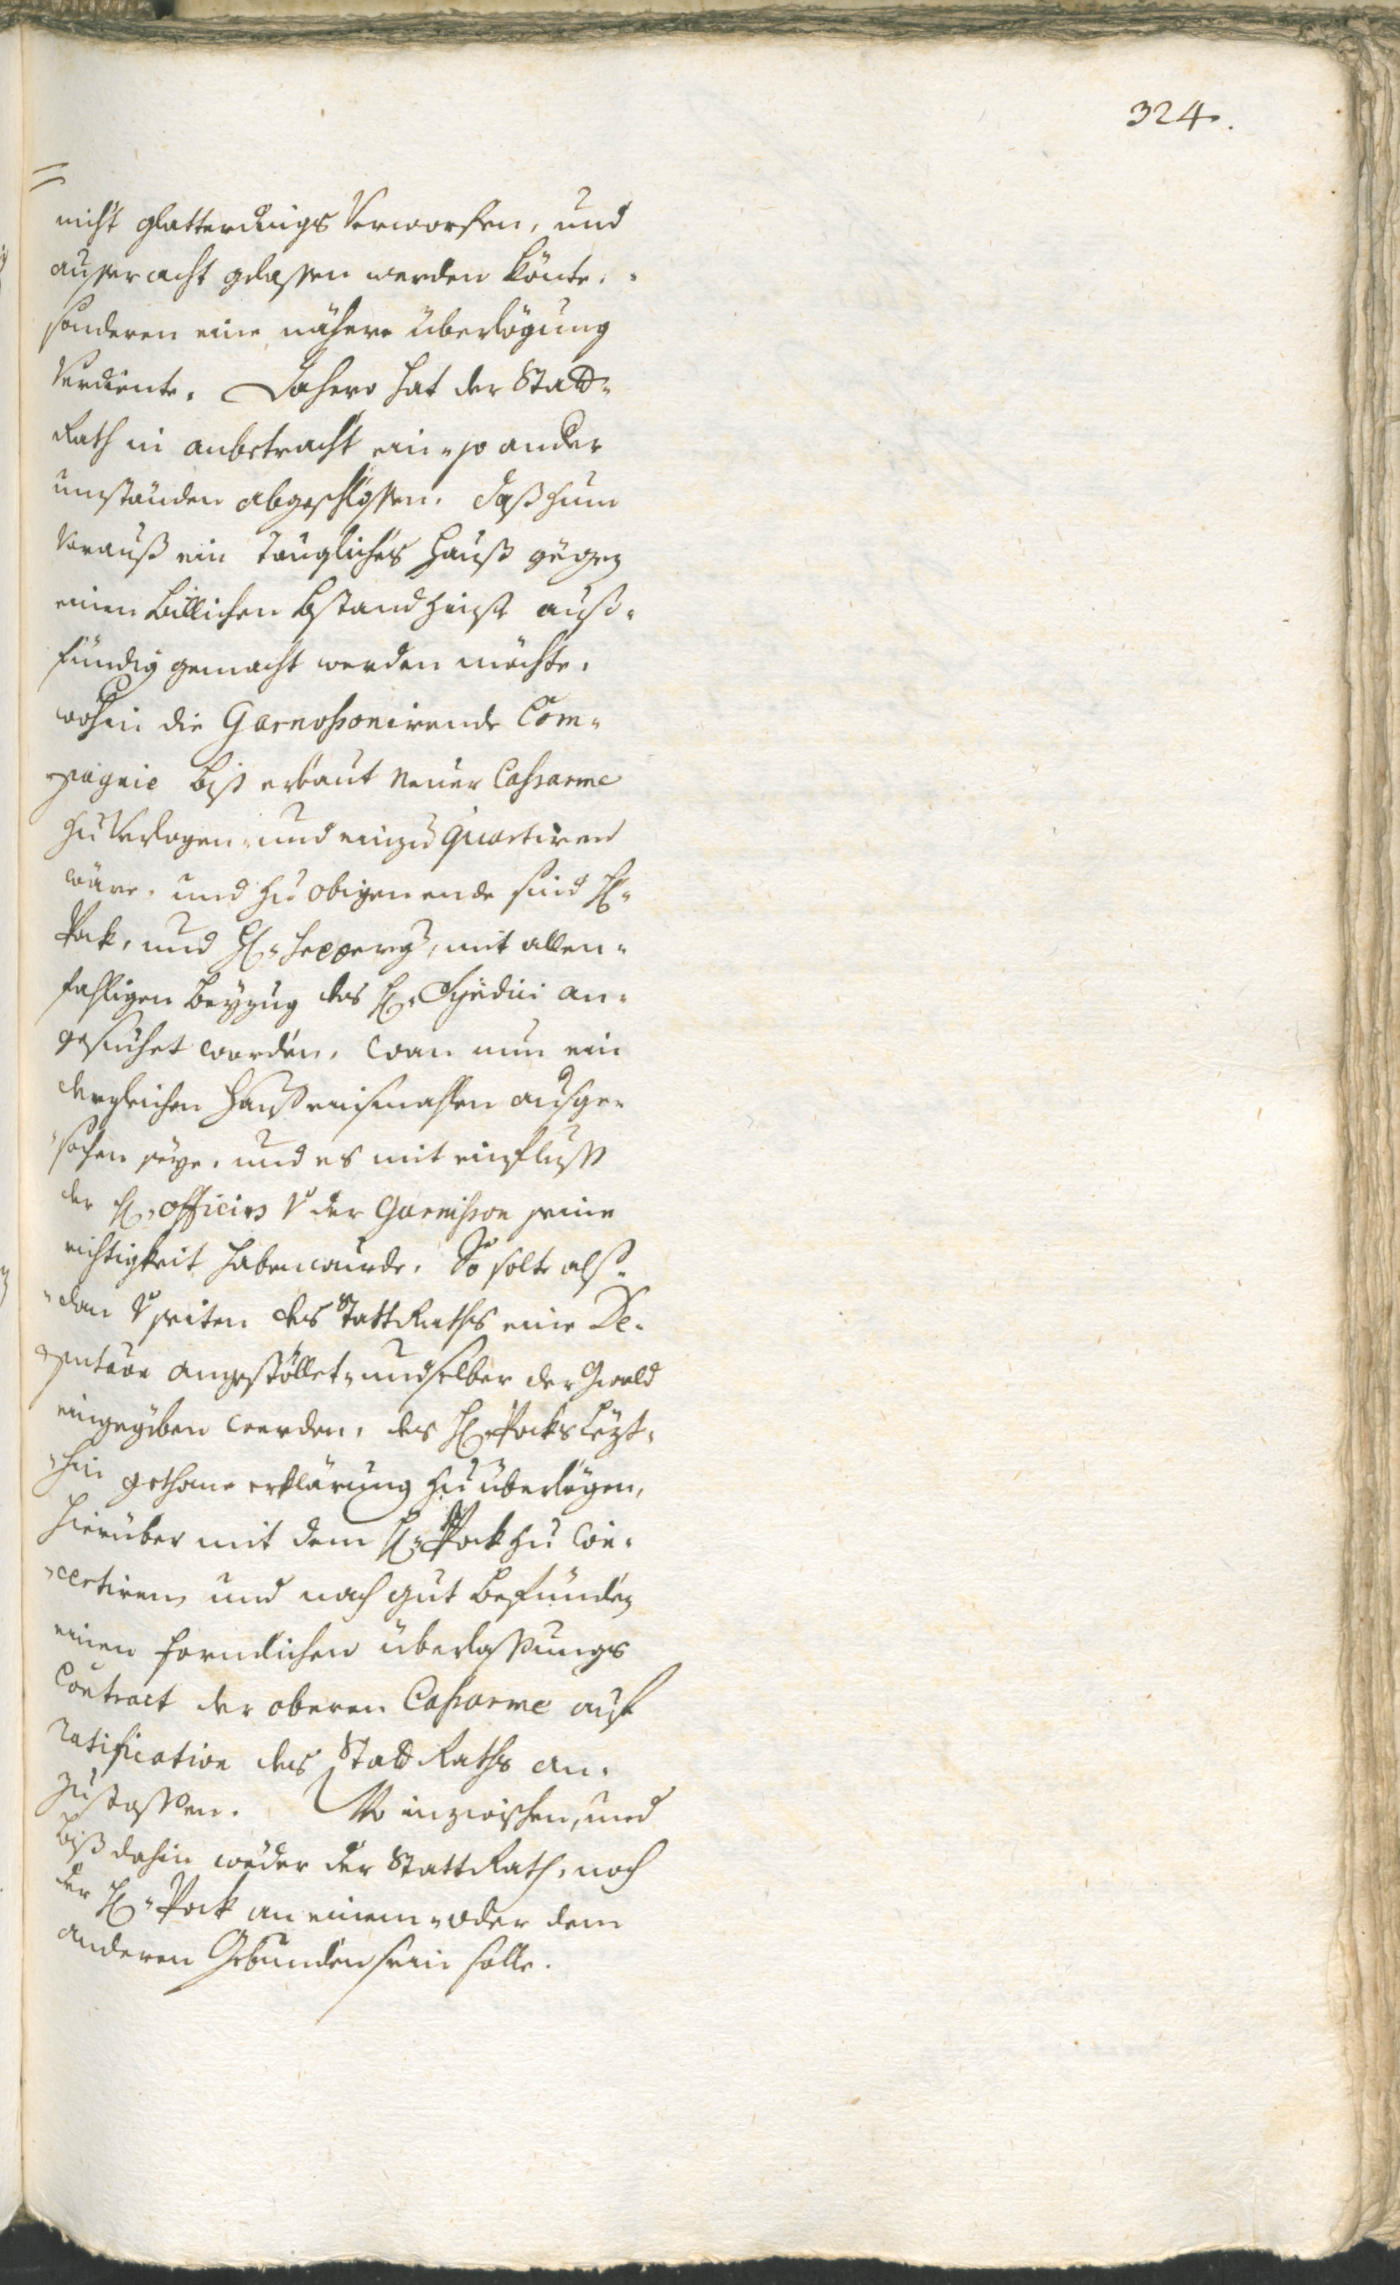 324.
=
nicht glatterdings Verworfen, und
ausser acht gelassen werden könte,
sonderen eine nähere überlögung
Verdiente. Dahero hat der Statt-
Rath in anbetracht ein so ander
umständen abgeschlossen. daß zum
Voraus ein taugliches Hauß gegen
einen billichen bstandzinß auß-
fündig gemacht werden möchte.
wohin die Garnossonirende Com-
pagnie biß erbaut Neuer Casharme
zu Verlegen, und einzu quartiren
wäre. und zu obigen ende sind H:
Pock, und H: , mit allen-
fahligen beyzug des H: Syndici an-
gesuchet worden. Wan nun ein
dergleichen Hauß einsmahlen ausge-
sechen seye, und es mit einfluss
der H: officirs V der Garnison seine
richtigkeit haben wurde. So solte als-
dan V seiten des Statt Raths eine De-
putaon angestöllet, und selber der Gwald
eingegeben werden, des H: Pocks lezt-
hin gethane erklärung zu überlegen,
hierüber mit dem H: Pock zu Con-
certiren, und nach gut befunden
einen formlichen überlassungs
Contract der oberen Casharme auf
ratification des Statt Raths an-
zustossen. Wo inzwischen, und
biß dahin weder der Statt Rath, noch
der H: Pock an einem- oder dem
anderen Gebunden sein solle.